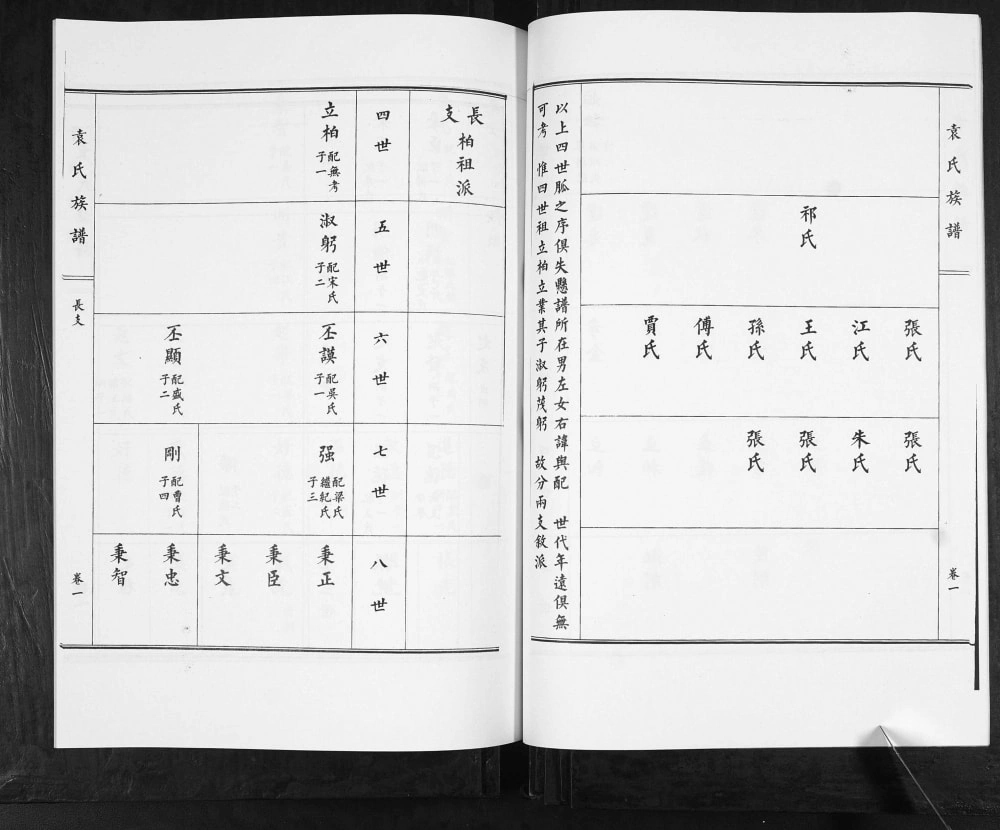 袁氏族譜
卷一
祁氏
張氏
江氏
王氏
孫氏
傅氏
賈氏
張氏
朱氏
張氏
張氏
以上四世脈之序俱失懸譜所在男左女右諱與配 世代年遠俱無
可考 惟四世祖立柏立業其子淑躬茂躬 故分兩支敘派
長支
柏祖派
四世
五世
六世
七世
八世
立柏
配無考
子一
淑躬
配宋氏
子二
丕謨
配吳氏
子一
丕顯
配盛氏
子二
强
配梁氏
繼紀氏
子三
剛
配曹氏
子四
秉正
秉臣
秉文
秉忠
秉智
袁氏族譜
長支
卷一